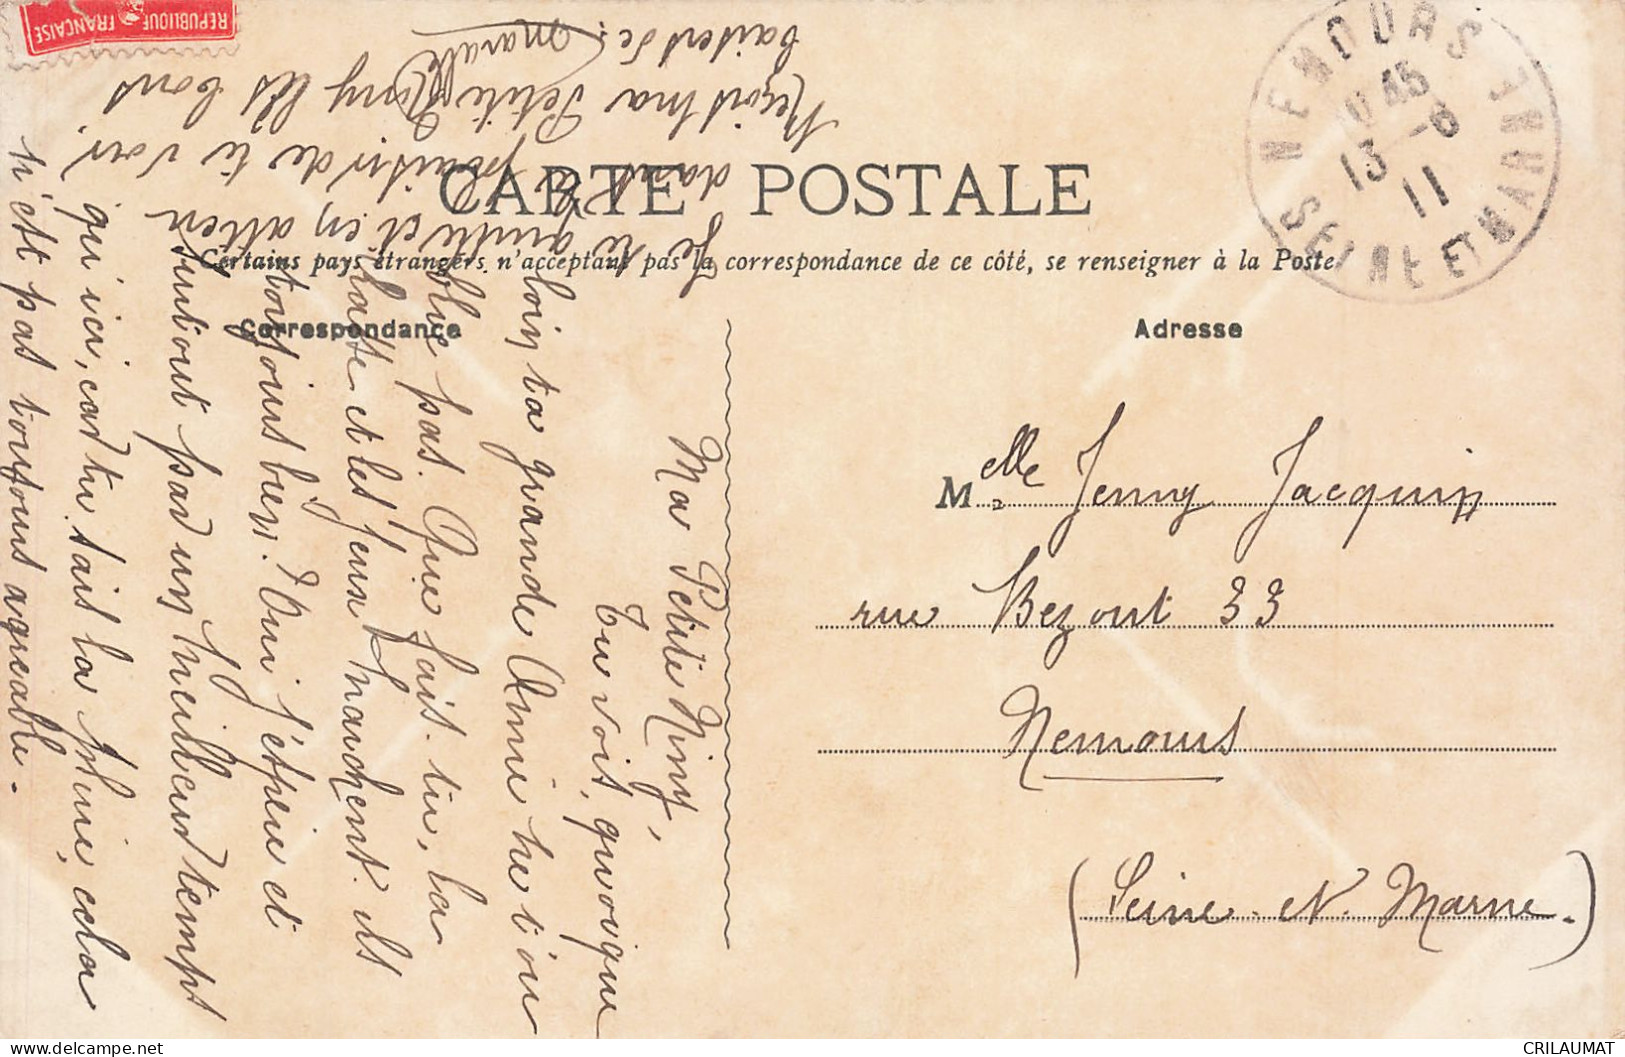 REPUBLIQUE FRANÇAISE
CARTE POSTALE
Certains pays étrangers n'acceptant pas la correspondance de ce côté, se renseigner à la Poste
Correspondance
Adresse
NEMOURS
45
13 -8
11
SEINE ET MARNE
Melle Jenny Jacquin
rue Bezout 33
Nemours
(Seine et Marne.)
Ma Petite Niny,
Tu vois, quoique
loin ta grande Amie ne t'ou
blie pas. Que fais tu, la
latte et les jeux marchent ils
toujours bien. Oui j'espère et
surtout par un meilleur temps
qu'ici, car tu sais la pluie, cela
n'est pas toujours agréable.
Je te quitte et en atten
dant le plaisir de te voir,
Reçois ma Petite Niny les bons
baisers de
CRILAUMAT